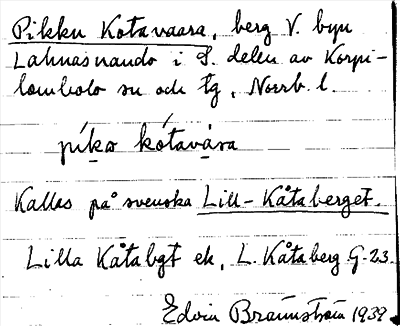 Pikku Kotavaara, berg V. byn
Lahnasnando i S. delen av Korpi-
lombolo sn och tg, Norrb. l.
píko kótavára
Kallas på svenska Lill-Kåtaberget.
Lilla Kåtabgt ek, L. Kåtaberg G. 23.
Edvin Brännström 1939